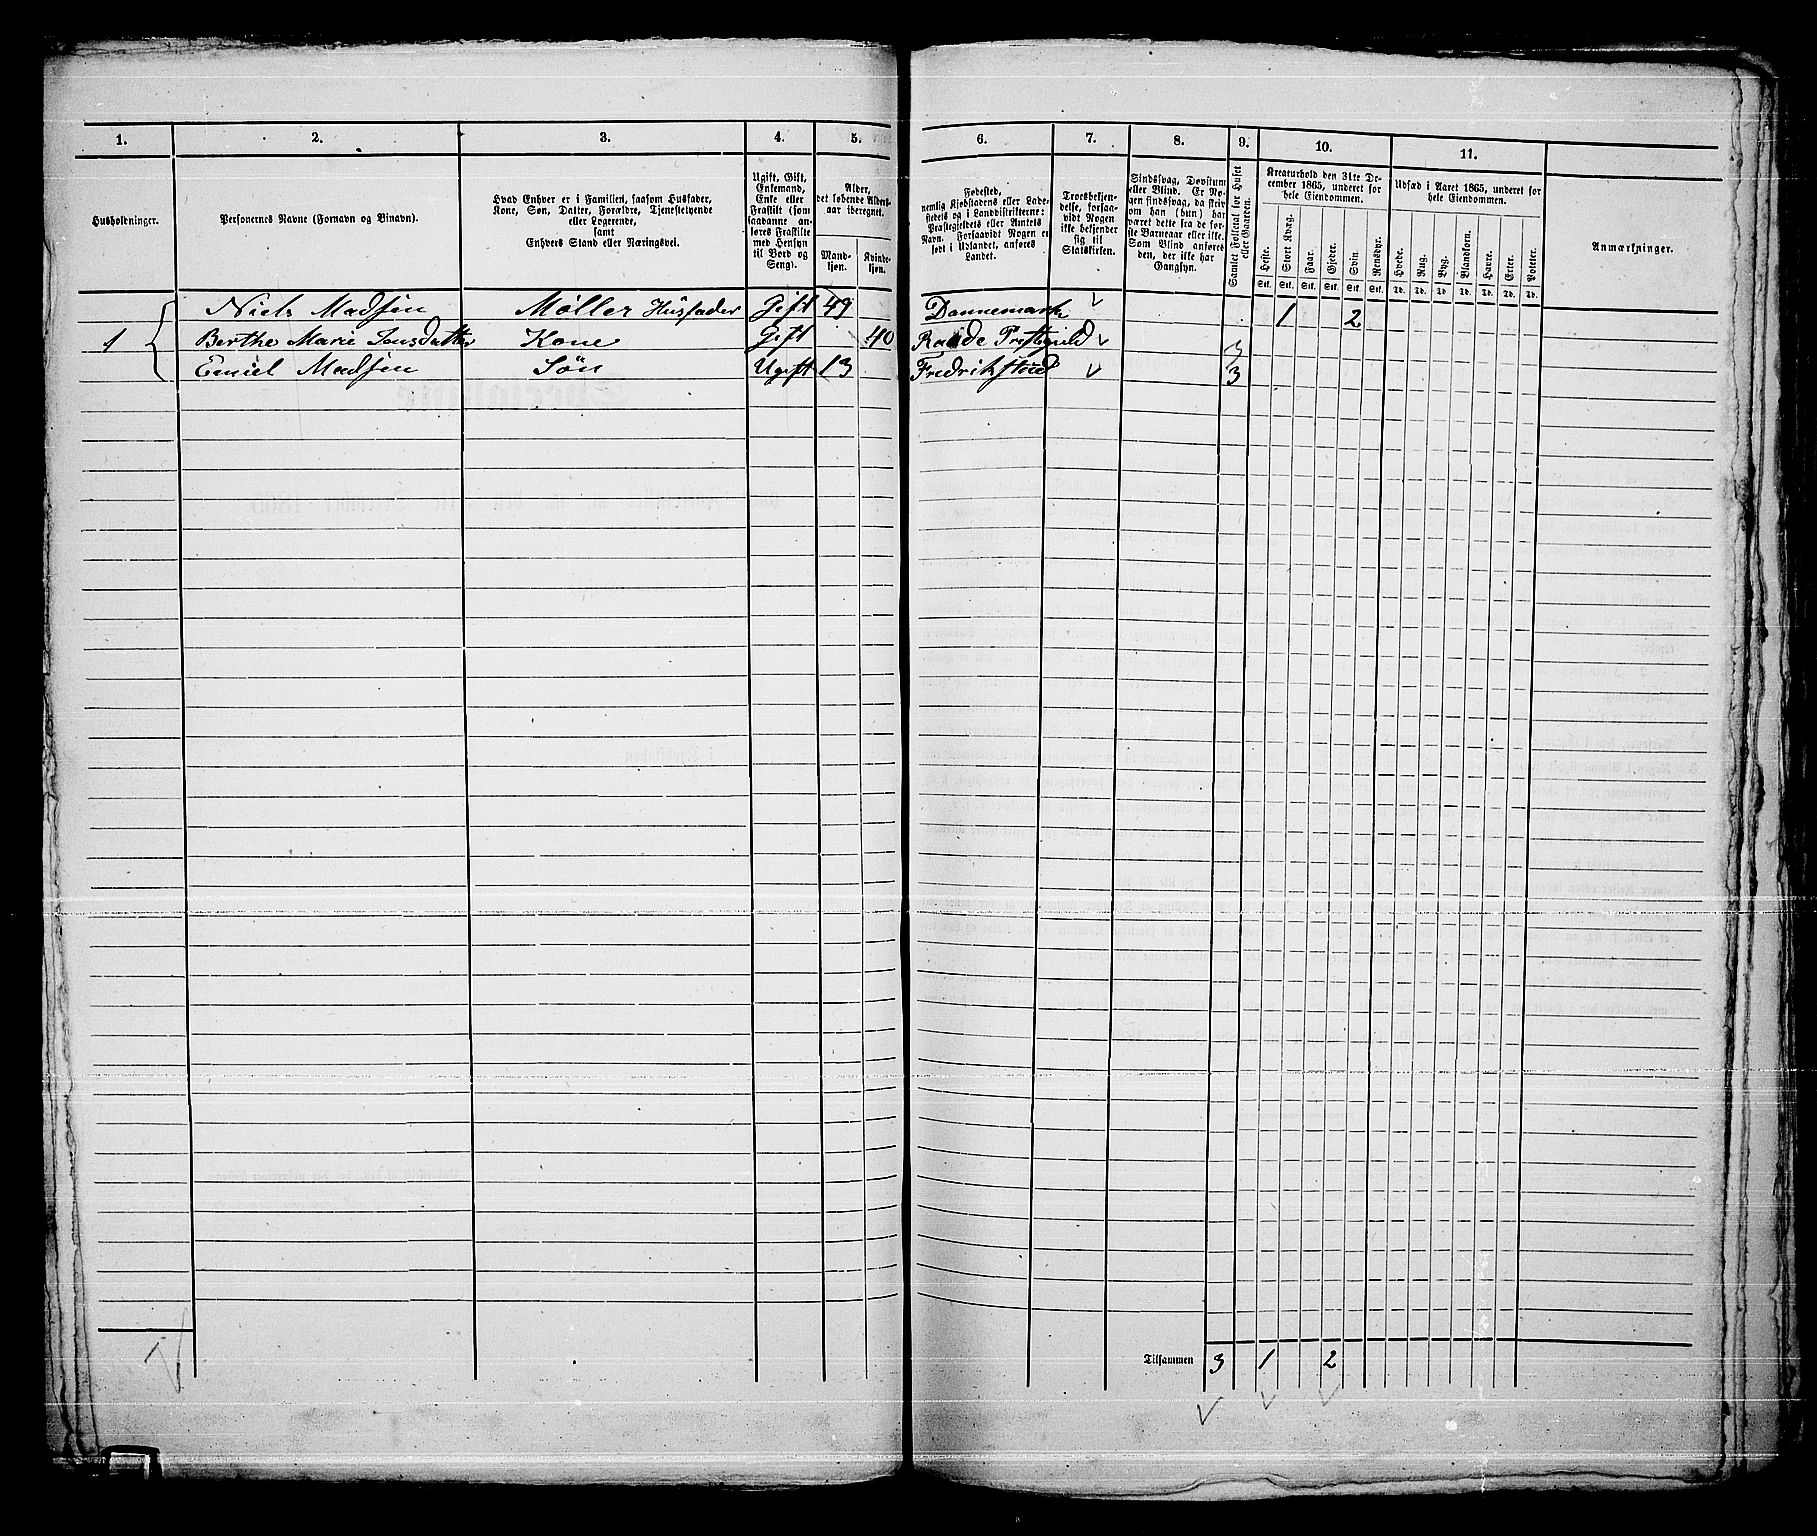 1. 2. 3. 4. 5. 6. 7. 8. 9. 10. 11.
Husholdninger.
Personernes Navne (Fornavn og Binavn).
Hvad Enhver er i Familien, saasom Husfader,
Kone, Søn, Datter, Forældre, Tjenestetyende
eller Logerende,
samt
Enhvers Stand eller Næringsvei.
Ugift, Gift,
Enkemand,
Enke eller
Fraskilt (som
saadanne an-
føres Fraskilte
med Hensyn
til Bord og
Seng).
Alder,
det løbende Alders-
aar iberegnet.
Mand-
kjøn.
Kvinde-
kjøn.
Fødested,
nemlig Kjøbstadens eller Lade-
stedets og i Landdistrikterne:
Præstegjeldets eller Amtets
Navn. Forsaavidt Nogen er
født i Udlandet, anføres
Landet.
Troesbekjen-
delse, forsaa-
vidt Nogen
ikke bekjender
sig til
Statskirken.
Sindssvag, Døvstum
eller Blind. Er No-
gen sindssvag, da skriv
om han (hun) har
været dette fra de før-
ste Barneaar eller ikke.
Som Blind anføres
den, der ikke har
Gangsyn.
Samlet Folketal for Huset
eller Gaarden.
Kreaturhold den 31te De-
cember 1865, underet for
hele Eiendommen.
Heste. Stort Kvæg. Faar. Gjeder. Svin. Rensdyr.
Stk. Stk. Stk. Stk. Stk. Stk.
Udsæd i Aaret 1865, underet for
hele Eiendommen.
Hvede. Rug. Byg. Blandkorn. Havre. Erter. Poteter.
Td. Td. Td. Td. Td. Td. Td.
Anmærkninger.
Niels Madsen Møller Husfader Gift 49 Dannemark 1 2
1 Berthe Marie Jensdatter Kone Gift 40 Raade 3
Emiel Madsen Søn Ugift 13 Fredrikstad 3
Tilsammen 3 1 2